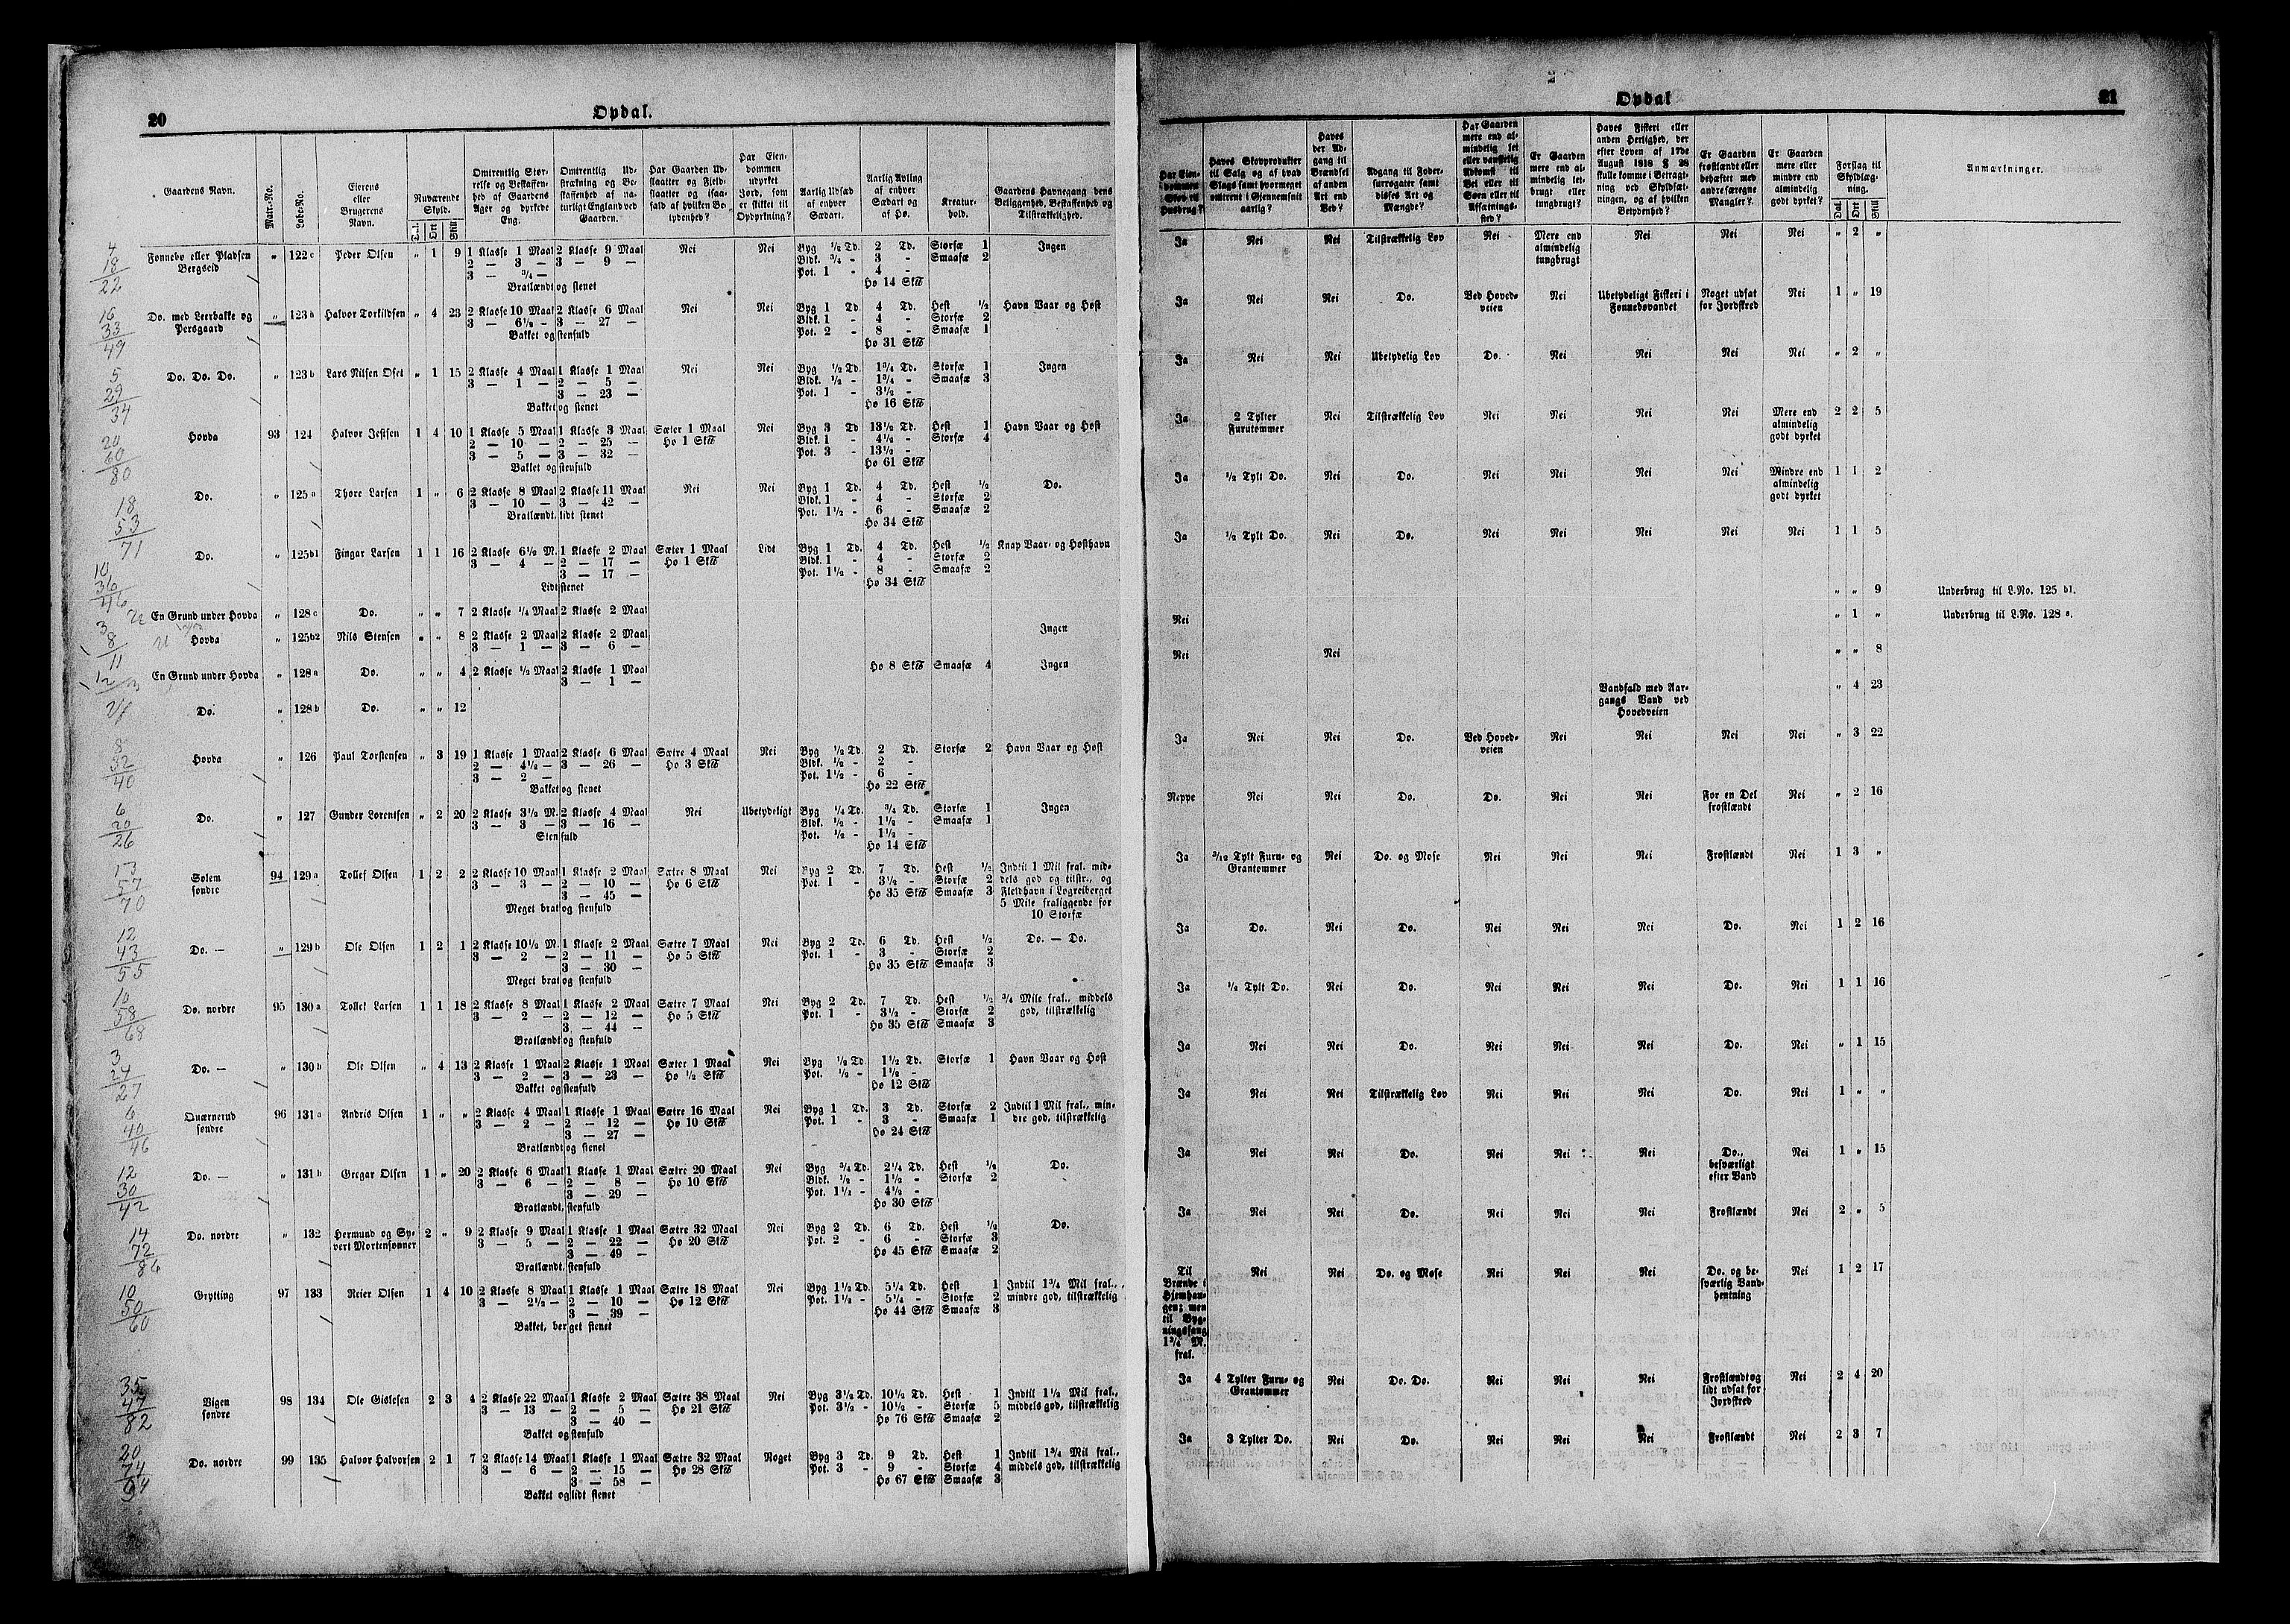 20
Opdal.
Gaardens Navn. Matr.-No. Løbe-No. Eierens eller Brugerens Navn. Nuværende Skyld. Dal. Ort Skill Omtrentlig Størrelse og Beskaffenhed af Gaardens Ager og dyrkede Eng. Omtrentlig Udstrækning og Beskaffenhed af naturligt England ved Gaarden. Har Gaarden Udslaatter og Fjeldslaatter og isaafald af hvilken Betydenhed? Har Eiendommen udyrket Jord, som er skikket til Opdyrkning? Aarlig Udsæd af enhver Sædart. Aarlig Avling af enhver Sædart og af Hø. Kreaturhold. Gaardens Havnegang, dens Beliggenhed, Beskaffenhed og Tilstrækkelighed.
4 18 22
Fønnebø eller Pladsen Bergseid „ 122 c Peder Olsen „ 1 9 1 Klasse 1 Maal 2 Klasse 9 Maal Nei Nei Byg ½ Td. 2 Td. Storfæ 1 Ingen
2 — 3 — 3 — 9 — Bldk. ¾ - 3 - Smaafæ 2
3 — ¾ — Pot. 1 - 4 -
Bratlændt og stenet Hø 14 Sk℔
16 33 49
Do. med Leerbakke og Persgaard „ 123 a Halvor Torkildsen „ 4 23 2 Klasse 10 Maal 2 Klasse 6 Maal Nei Nei Byg 1 Td. 4 Td. Hest ½ Havn Vaar og Høst
3 — 6½ - 3 — 27 — Bldk. 1 - 4 - Storfæ 2
Bakket og stenfuld Pot. 2 - 8 - Smaafæ 1
Hø 31 Sk℔
5 29 34
Do. Do. Do. „ 123 b Lars Nilsen Oset „ 1 15 2 Klasse 4 Maal 1 Klasse 1 Maal Nei Nei Byg ½ Td. 1¾ Td. Storfæ 1 Ingen
3 — 1 — 2 — 5 — Bldk. ½ - 1¾ - Smaafæ 3
3 — 23 — Pot. 1 - 3½ -
Bakket og stenet Hø 16 Sk℔
20 60 80
Hovda 93 124 Halvor Jeltsen 1 4 10 1 Klasse 5 Maal 1 Klasse 3 Maal Sæter 1 Maal Nei Byg 3 Td 13½ Td. Hest 1 Havn Vaar og Høst
2 — 10 — 2 — 25 — Hø 1 Sk℔ Bldk. 1 - 4½ - Storfæ 4
3 — 5 — 3 — 32 — Pot. 3 - 13½ -
Bakket og stenfuld Hø 61 Sk℔
18 53 71
Do. „ 125 a Thore Larsen 1 „ 6 2 Klasse 8 Maal 2 Klasse 11 Maal Nei Nei Byg 1 Td. 4 Td. Hest ½ Do.
3 — 10 — 3 — 42 — Bldk. 1 - 4 - Storfæ 2
Bratlændt, lidt stenet Pot. 1½ - 6 - Smaafæ 2
Hø 34 Sk℔
10 36 46
Do. „ 125 b1 Fingar Larsen 1 1 16 2 Klasse 6½ M. 1 Klasse 2 Maal Sæter 1 Maal Lidt Byg 1 Td. 4 Td. Hest ½ Knap Vaar- og Høsthavn
3 — 4 — 2 — 17 — Hø 1 Sk℔ Bldk. 1 - 4 - Storfæ 2
3 — 17 — Pot. 1½ - 8 - Smaafæ 2
Lidt stenet Hø 34 Sk℔
En Grund under Hovda „ 128 c Do. „ „ 7 2 Klasse ¼ Maal 2 Klasse 2 Maal
3 8 11
Hovda „ 125 b2 Nils Stensen „ „ 8 2 Klasse 2 Maal 2 Klasse 2 Maal Ingen
3 — 1 — 3 — 6 —
En Grund under Hovda „ 128 a Do. „ „ 4 2 Klasse ½ Maal 2 Klasse 1 Maal Hø 8 Sk℔ Smaafæ 4 Ingen
3 — 1 —
Do. „ 128 b Do. „ „ 12
8 32 40
Hovda „ 126 Paul Torstensen „ 3 19 1 Klasse 1 Maal 2 Klasse 6 Maal Sætre 4 Maal Nei Byg ½ Td. 2 Td. Storfæ 2 Havn Vaar og Høst
2 — 4½ — 3 — 26 — Hø 3 Sk℔ Bldk. ½ - 2 -
3 — 2 — Pot. 1½ - 6 -
Bakket og stenet Hø 22 Sk℔
6 20 26
Do. „ 127 Gunder Lorentsen „ 2 20 2 Klasse 3½ M. 2 Klasse 4 Maal Nei Ubetydeligt Byg ¼ Td. ¾ Td. Storfæ 1 Ingen
3 — 3 — 3 — 16 — Bldk. ½ - 1½ - Smaafæ 1
Stenfuld Pot. ½ - 1½ -
Hø 14 Sk℔
13 57 70
Solem søndre 94 129 a Tollef Olsen 1 2 2 2 Klasse 10 Maal 1 Klasse 2 Maal Sætre 8 Maal Nei Byg 2 Td. 7 Td. Hest ½ Indtil 1 Mil fral. middels god og tilstr., og Fjeldhavn i Løgreiberget 5 Mile fraliggende for 10 Storfæ
3 — 3 — 2 — 10 — Hø 6 Sk℔ Pot. 1 - 3½ - Storfæ 2
3 — 45 — Hø 35 Sk℔ Smaafæ 3
Meget brat og stenfuld
12 43 55
Do. — „ 129 b Ole Olsen 1 2 1 2 Klasse 10½ M. 1 Klasse 2 Maal Sætre 7 Maal Nei Byg 2 Td. 6 Td. Hest ½ Do. — Do.
3 — 2 — 2 — 11 — Hø 5 Sk℔ Pot. 1 - 3 - Storfæ 2
3 — 30 — Hø 35 Sk℔ Smaafæ 3
Meget brat og stenfuld
10 58 68
Do. nordre 95 130 a Tollef Larsen 1 1 18 2 Klasse 8 Maal 1 Klasse 2 Maal Sætre 7 Maal Nei Byg 2 Td. 7 Td. Hest ½ ¾ Mile fral., middels god, tilstrælkelig
3 — 2 — 2 — 12 — Hø 5 Sk℔ Pot. 1 - 3½ - Storfæ 2
3 — 44 — Hø 35 Sk℔ Smaafæ 3
Bratlændt og stenfuld
3 24 27
Do. — „ 130 b Ole Olsen „ 4 13 2 Klasse 1 Maal 2 Klasse 1 Maal Sæter 1 Maal Nei Byg ½ Td. 1½ Td. Storfæ 1 Havn Vaar og Høst
3 — 2 — 3 — 23 — Hø ½ Sk℔ Pot. ½ - 1½ -
Bakket og stenfuld Hø 12 Sk℔
6 40 46
Qværnerud søndre 96 131 a Andris Olsen 1 „ „ 2 Klasse 4 Maal 1 Klasse 1 Maal Sætre 16 Maal Nei Byg 1 Td. 3 Td. Storfæ 2 Indtil 1 Mil fral., mindre god, tilstrækkelig
3 — 2 — 2 — 12 — Hø 10 Sk℔ Pot. 1 - 3 - Smaafæ 1
3 — 27 — Hø 24 Sk℔
Bratlændt og stenet
12 30 42
Do. — „ 131 b Gregar Olsen 1 „ 20 2 Klasse 6 Maal 1 Klasse 1 Maal Sætre 20 Maal Nei Byg ¾ Td. 2¼ Td. Hest ½ Do.
3 — 6 — 2 — 8 — Hø 10 Sk℔ Bldk. ½ - 1½ - Storfæ 2
3 — 29 — Pot. 1½ - 4½ -
Bratlændt, stenfuld Hø 30 Sk℔
14 72 86
Do. nordre „ 132 Hermund og Syvert Mortensønner 2 „ 9 2 Klasse 9 Maal 1 Klasse 1 Maal Sætre 32 Maal Nei Byg 2 Td. 6 Td. Hest ½ Do.
3 — 5 — 2 — 22 — Hø 20 Sk℔ Pot. 2 - 6 - Storfæ 3
3 — 49 — Hø 45 Sk℔ Smaafæ 2
Bratlændt, stenfuld
10 50 60
Grytting 97 133 Reier Olsen 1 4 10 2 Klasse 8 Maal 1 Klasse 1 Maal Sætre 18 Maal Nei Byg 1½ Td. 5¼ Td. Hest 1 Indtil 1¾ Mil fral., mindre god, tilstrækkelig
3 — 2½ — 2 — 10 — Hø 12 Sk℔ Pot. 1½ - 5¼ - Storfæ 2
3 — 39 — Hø 44 Sk℔ Smaafæ 3
Bakket, berget stenet
35 47 82
Vigen søndre 98 134 Ole Gislesen 2 3 4 2 Klasse 22 Maal 1 Klasse 2 Maal Sætre 38 Maal Nei Byg 3½ Td. 10½ Td. Hest 1 Indtil 1¼ Mil fral., middels god, tilstrækkelig
3 — 13 — 2 — 5 — Hø 21 Sk℔ Pot. 3½ - 10½ - Storfæ 5
3 — 40 — Hø 76 Sk℔ Smaafæ 2
Bakket og stenfuld
20 74 94
Do. nordre 99 135 Halvor Halvorsen 2 1 7 2 Klasse 14 Maal 1 Klasse 1 Maal Sætre 32 Maal Noget Byg 3 Td. 9 Td. Hest 1 Indtil 1¾ Mil fral., middels god, tilstrækkelig
3 — 6 — 2 — 15 — Hø 28 Sk℔ Pot. 3 - 9 - Storfæ 4
3 — 58 — Hø 67 Sk℔ Smaafæ 3
Bakket og lidt stenet
2
Opdal
21
Har Eiendommen Skov til Husbrug? Haves Skovprodukter til Salg og af hvad Slags samt hvormeget omtrent i Gjennemsnit aarlig? Haves der Adgang til Brændsel af anden Art end Ved? Adgang til Fodersurrogater samt disses Art og Mængde? Har Gaarden mere end almindelig let eller vanskelig Adkomst til Vei eller til Søen eller til Afsætningssted? Er Gaarden mere end almindelig letbrugt eller tungbrugt? Haves Fiskeri eller anden Herlighed, der efter Loven af 17de August 1818 § 28 skulle komme i Betragtning ved Skyldsætningen, og af hvilken Betydenhed? Er Gaarden frostlændt eller behæftet med andre særegne Mangler? Er Gaarden mere eller mindre end almindelig godt dyrket? Forslag til Skyldlægning. Dal. Ort Skill Anmærkninger.
Ja Nei Nei Tilstrækkelig Løv Nei Mere end almindelig tungbrugt Nei Nei Nei „ 2 „
Ja Nei Nei Do. Ved Hovedveien Nei Ubetydeligt Fiskeri i Fønnebøvandet Noget udsat for Jordskred Nei 1 „ 19
Ja Nei Nei Ubetydelig Løv Do. Nei Nei Nei Nei „ 2 „
Ja 2 Tylter Furutømmer Nei Tilstrækkelig Løv Nei Nei Nei Nei Mere end almindelig godt dyrket 2 2 5
Ja ½ Tylt Do. Nei Do. Nei Nei Nei Nei Mindre end almindelig godt dyrket 1 1 2
Ja ½ Tylt Do. Nei Do. Nei Nei Nei Nei Nei 1 1 5
„ „ 9 Underbrug til L.No. 125 b1.
Nei „ 1 „ Underbrug til L.No. 128 a.
Nei Nei „ „ 8
Vandfald med Aargangs Vand ved Hovedveien „ 4 23
Ja Nei Nei Do. Ved Hovedveien Nei Nei Nei Nei „ 3 22
Neppe Nei Nei Do. Do. Nei Nei For en Del frostlændt Nei „ 2 16
Ja 3/12 Tylt Furu- og Grantømmer Nei Do. og Mose Nei Nei Nei Frostlændt Nei 1 3 „
Ja Do. Nei Do. Nei Nei Nei Do. Nei 1 2 16
Ja ½ Tylt Do. Nei Do. Nei Nei Nei Do. Nei 1 1 16
Ja Nei Nei Do. Nei Nei Nei Do. Nei „ 1 15
Ja Nei Nei Tilstrækkelig Løv Nei Nei Nei Do. Nei 1 „ „
Ja Nei Nei Do. Nei Nei Nei Do., besværligt efter Vand Nei 1 „ 15
Ja Nei Nei Do. Nei Nei Nei Frostlændt Nei 2 „ 5
Til Brænde i Hjemhaugen; men til Bygningsfang 1¾ M. fral. Nei Nei Do. og Mose Nei Nei Nei Do. og besværlig Vandhentning Nei 1 2 17
Ja 4 Tylter Furu- og Grantømmer Nei Do. Do. Nei Nei Nei Frostlændt og lidt udsat for Jordskred Nei 2 4 20
Ja 3 Tylter Do. Nei Do. Nei Nei Nei Frostlændt Nei 2 3 7